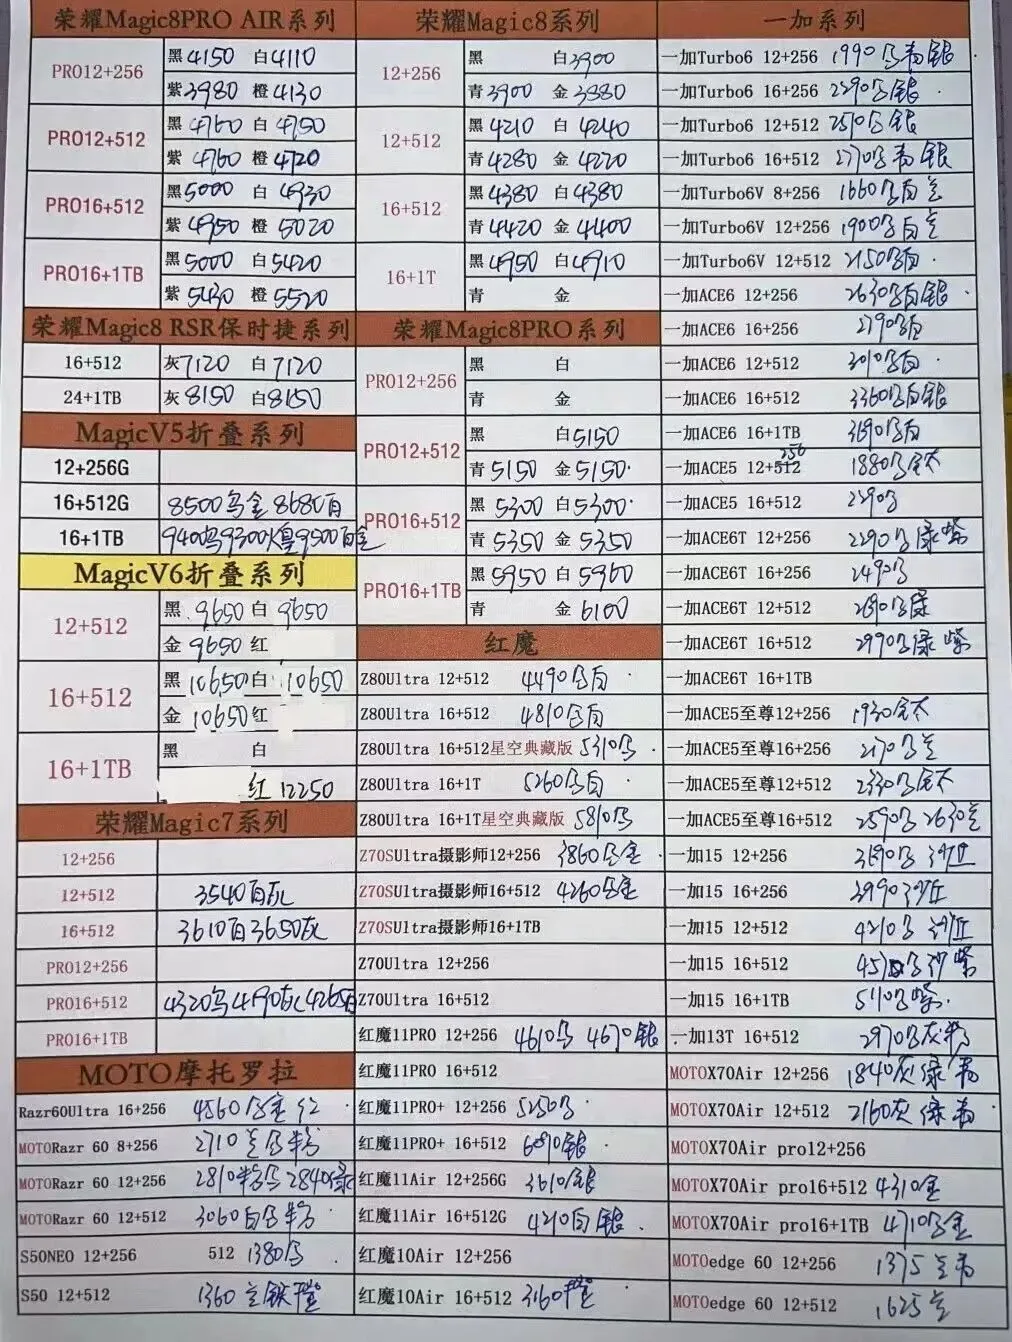 荣耀Magic8PRO AIR系列
PRO12+256 黑4150 白4110
紫3980 橙4130
PRO12+512 黑4760 白4750
紫4760 橙4720
PRO16+512 黑5000 白4930
紫4950 橙5020
PRO16+1TB 黑5000 白5420
紫5430 橙5520
荣耀Magic8 RSR保时捷系列
16+512 灰7120 白7120
24+1TB 灰8150 白8150
MagicV5折叠系列
12+256G
16+512G 8500乌金8680白
16+1TB 9400乌9300火皇9500白金
MagicV6折叠系列
12+512 黑9650 白9650
金9650 红
16+512 黑10650 白10650
金10650 红
16+1TB 黑 白
红12250
荣耀Magic7系列
12+256
12+512 3540白灰
16+512 3610白3650灰
PRO12+256
PRO16+512 4320乌4190灰4265白
PRO16+1TB
MOTO摩托罗拉
Razr60Ultra 16+256 4560乌金红
MOTORazr 60 8+256 2710兰乌粉
MOTORazr 60 12+256 2810粉乌2840绿
MOTORazr 60 12+512 3060白乌粉
S50NEO 12+256 512 1380乌
S50 12+512 1360兰
荣耀Magic8系列
12+256 黑 白3900
青3900 金3880
12+512 黑4210 白4240
青4280 金4220
16+512 黑4380 白4380
青4420 金4400
16+1T 黑4950 白4910
青 金
荣耀Magic8PRO系列
PRO12+256 黑 白
青 金
PRO12+512 黑 白5150
青5150 金5150
PRO16+512 黑5300 白5300
青5350 金5350
PRO16+1TB 黑5950 白5960
青 金6100
红魔
Z80Ultra 12+512 4490乌白
Z80Ultra 16+512 4810乌白
Z80Ultra 16+512星空典藏版 5310乌
Z80Ultra 16+1T 5260乌白
Z80Ultra 16+1T星空典藏版 5810乌
Z70SUltra摄影师12+256 3860乌金
Z70SUltra摄影师16+512 4260乌金
Z70SUltra摄影师16+1TB
Z70Ultra 12+256
Z70Ultra 16+512
红魔11PRO 12+256 4610乌 4670银
红魔11PRO 16+512
红魔11PRO+ 12+256 5250乌
红魔11PRO+ 16+512 6090银
红魔11Air 12+256G 3610银
红魔11Air 16+512G 4210白银
红魔10Air 12+256
红魔10Air 16+512 3160
一加系列
一加Turbo6 12+256 1990乌青银
一加Turbo6 16+256 2290乌银
一加Turbo6 12+512 2510乌银
一加Turbo6 16+512 2770乌青银
一加Turbo6V 8+256 1660乌白兰
一加Turbo6V 12+256 1900乌白兰
一加Turbo6V 12+512 2150乌白
一加ACE6 12+256 2630乌白银
一加ACE6 16+256 2790乌白
一加ACE6 12+512 3010乌白
一加ACE6 16+512 3360乌白银
一加ACE6 16+1TB 3690乌白
一加ACE5 12+512 256 1880乌太
一加ACE5 16+512 2290乌
一加ACE6T 12+256 2290乌绿紫
一加ACE6T 16+256 2490乌
一加ACE6T 12+512 2690乌绿
一加ACE6T 16+512 2990乌绿紫
一加ACE6T 16+1TB
一加ACE5至尊12+256 1930太
一加ACE5至尊16+256 2170乌兰
一加ACE5至尊12+512 2330乌太
一加ACE5至尊16+512 2590乌2630兰
一加15 12+256 3690乌 沙丘
一加15 16+256 3990沙丘
一加15 12+512 4210乌 沙丘
一加15 16+512 乌沙紫
一加15 16+1TB 5110乌紫
一加13T 16+512 2970乌灰粉
MOTOX70Air 12+256 1840灰绿青
MOTOX70Air 12+512 2160灰绿青
MOTOX70Air pro12+256
MOTOX70Air pro16+512 4310金
MOTOX70Air pro16+1TB 4710乌金
MOTOedge 60 12+256 1375兰青
MOTOedge 60 12+512 1625兰